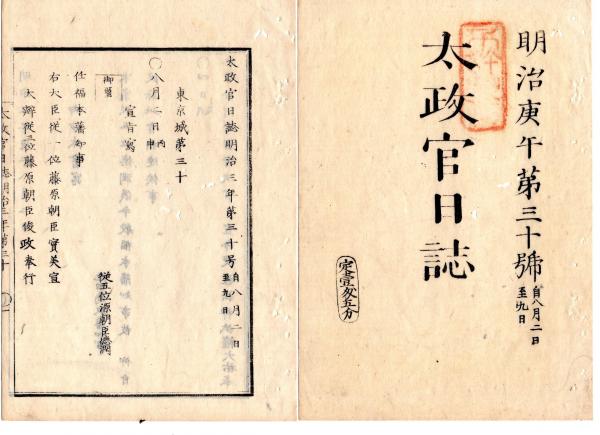 明治庚午第三十號 自八月二日至九日
太政官日誌
定壹匁五分
太政官日誌明治三年第三十号 自八月二日至九日
東京城第三十
〇八月二日丙申
宣旨寫
御璽
從五位源朝臣
任福本藩知事
右大臣從一位藤原朝臣實美宣
大辨從三位藤原朝臣俊政奉行
太政官日誌明治三年第三十